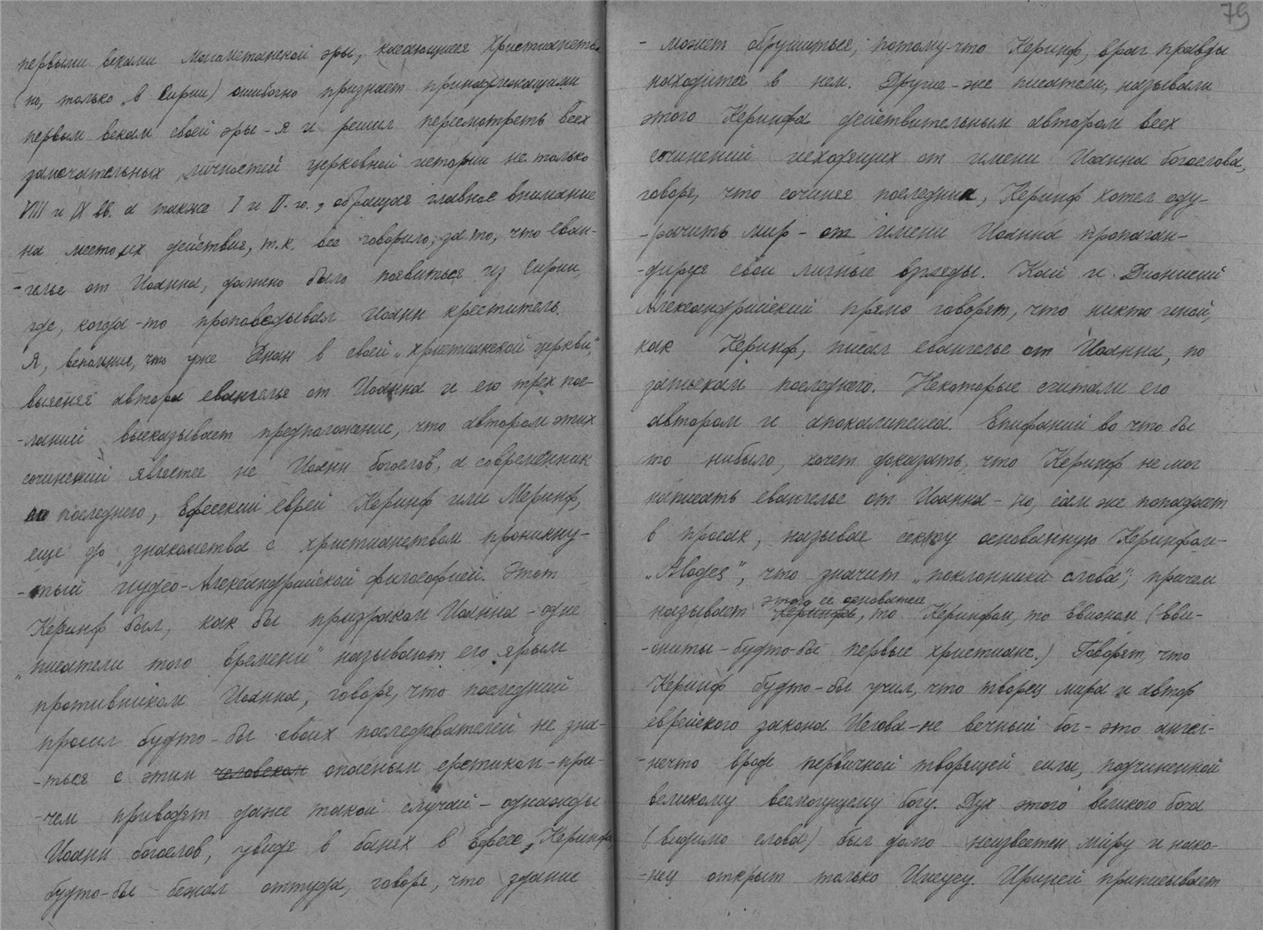 первыми веками Магометанской эры, касающиеся Христианства
(но, только „в Сирии) ошибочно признает принадлежащими
первым векам своей эры - я и решил пересмотреть всех
замечательных личностей церковной истории не только
VIII и IX вв. а также I и II. го., обращая главное внимание
на место их действия, т.к. все говорило, за то, что еван-
-гелье от Иоанна, должно было появиться из Сирии,
где, когда-то проповедывал Иоанн креститель.
Я, вспомнил, что уже Ренан в своей „Христианской церкви",
выясняя автора евангелье от Иоанна и его трех пос-
-ланий высказывает предположение, что автором этих
сочинений является не Иоанн богослов, а современник
последнего, Ефесский еврей Керинф или Меринф,
еще до знакомства с христианством проникну-
-тый иудео-Александрийской философией. Этот
Керинф был, как бы призраком Иоанна - одни
„писатели того времени" называют его ярым
противником Иоанна, говоря, что последний
просил будто-бы своих последователей не зна-
-ться с этим человеком опасным еретиком - при-
-чем приводят даже такой случай - однажды
Иоанн богослов, увидя в банях в Ефесе, Керинфа
будто-бы бежал оттуда, говоря, что здание
79
- может обрушиться, потому-что Керинф, враг правды
находится в нем. Другие-же писатели, называли
этого Керинфа действительным автором всех
сочинений исходящих от имени Иоанна богослова,
говоря, что сочиняя последния, Керинф хотел оду-
-рачить мир - от имени Иоанна пропаган-
-дируя свои личные взгляды. Кай и Дионисий
Александрийский прямо говорят, что никто иной,
как Керинф, писал евангелье от Иоанна, по
записькам последнего. Некоторые считали его
автором и апокалипсиса. Епифаний во что бы
то нибыло, хочет доказать, что Керинф не мог
написать евангелье от Иоанна - но, сам же попадает
в просак, называя секту основанную Керинфом -
„Aloges", что значит „поклонники слова", причем
этого ее основателя
называет Керинфа, то Керинфом, то Евионом (Еви-
-ониты - будто-бы первые христиане.) Говорят, что
Керинф будто-бы учил, что творец мира и автор
еврейского закона Иегова - не вечный бог - это ангел -
-нечто вроде первичной творящей силы, подчиненной
великому всемогущему богу. Дух этого великого бога
(видимо слова) был долго неизвестен міру и нако-
-нец открыт только Иисусу. Ириней приписывает